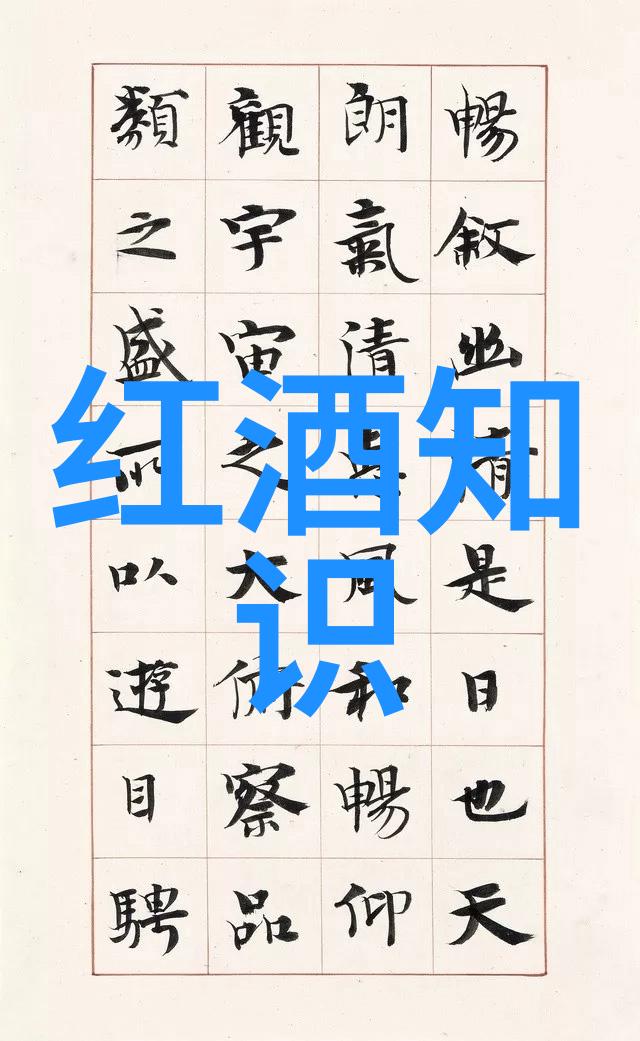 暢敘幽情是日也天
朗氣清風和暢仰
觀宇宙之大俯察品
類之盛所以遊目騁
红酒知
识